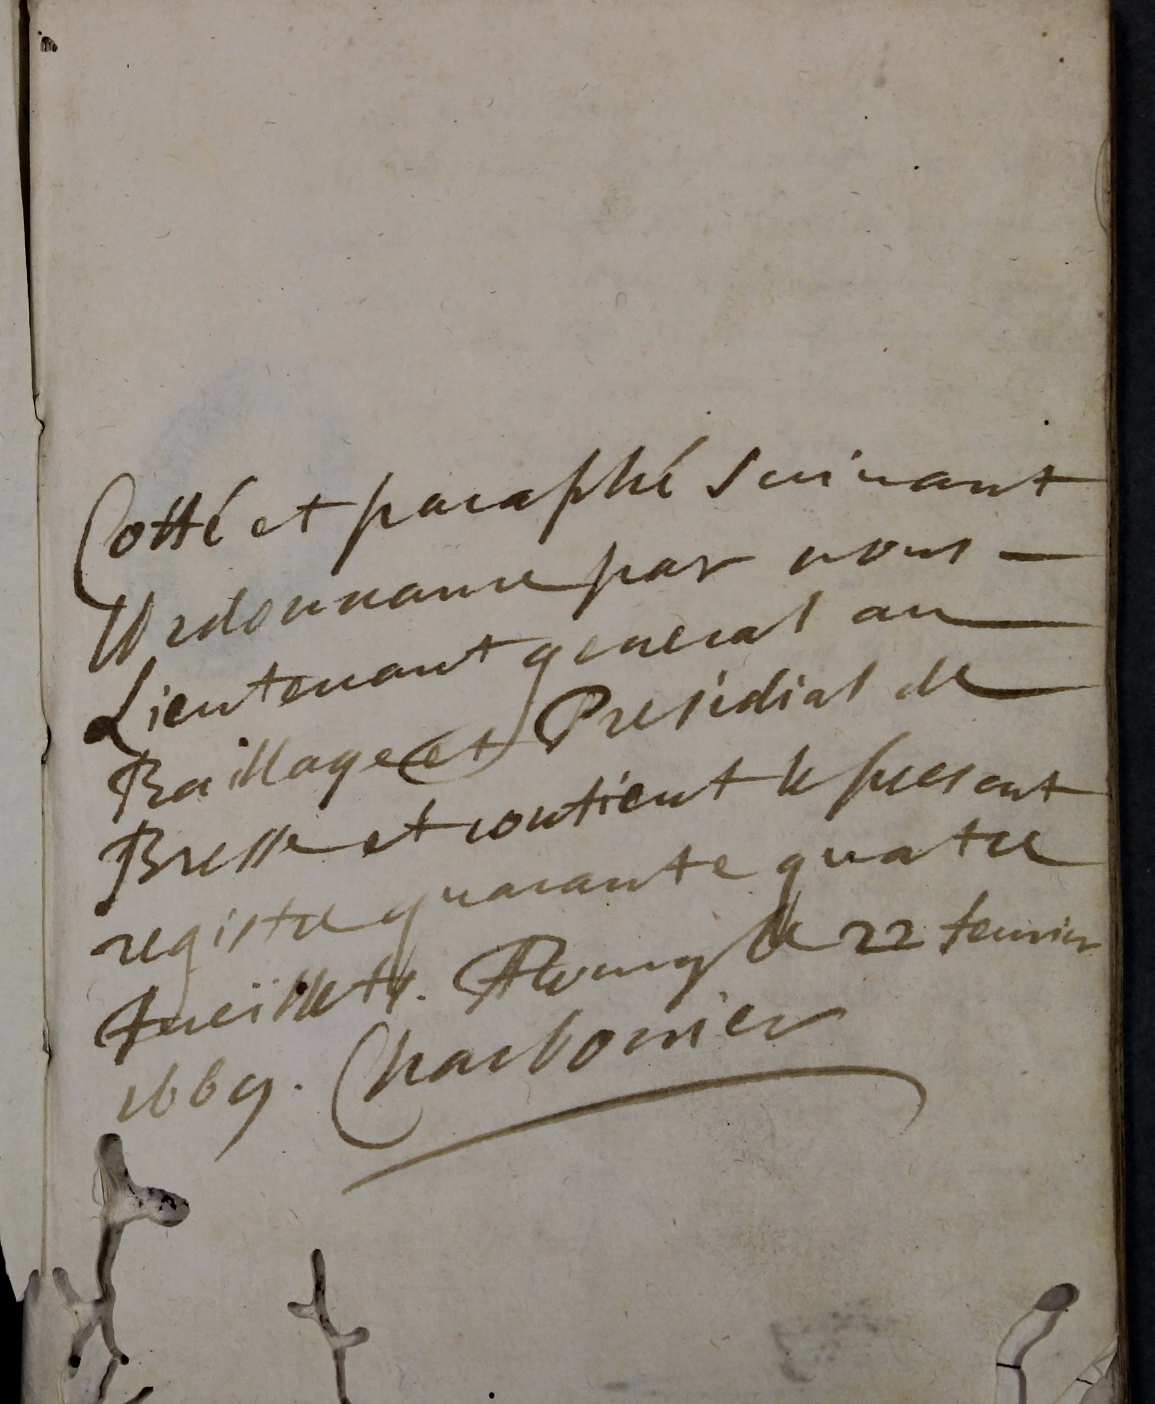 Cotté et paraphé suivant
l'Ordonnance par nous
Lieutenant general au
Baillage et Presidial de
Bresse et contient le present
registre quarante quatre
fueillets. A Bourg le 22 feuvrier
1669. Charbonnier